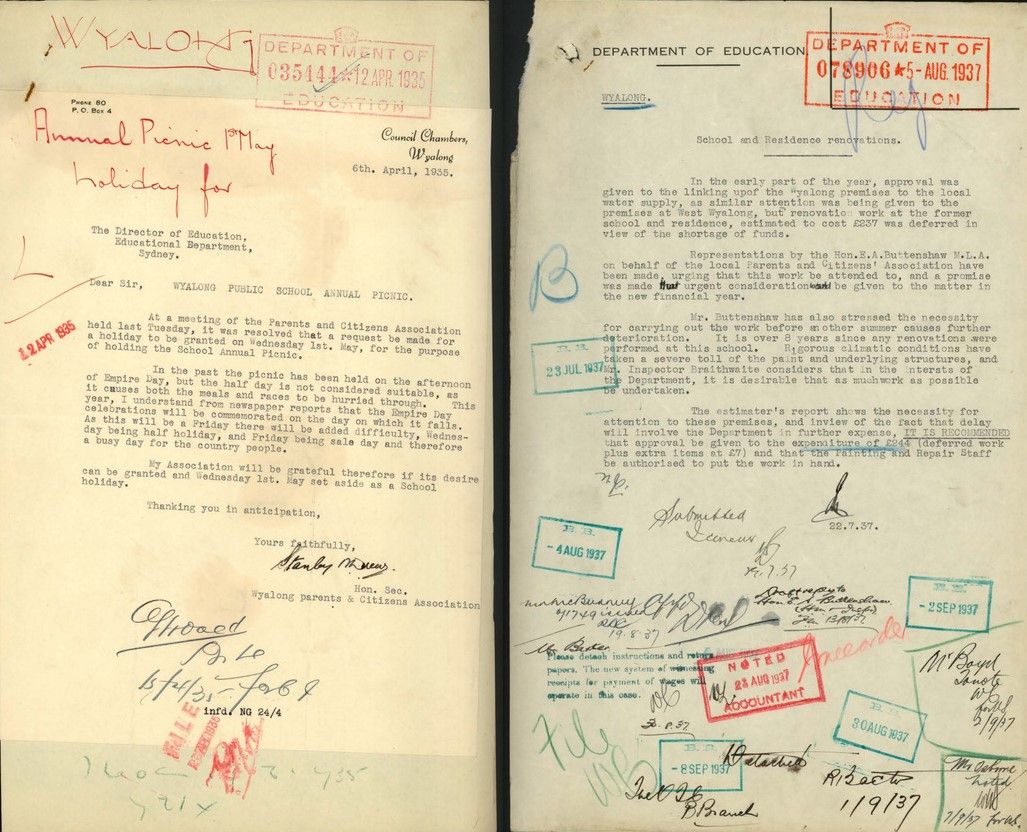 WYALONG
DEPARTMENT OF
035444★12 APR. 1935
EDUCATION
PHONE 60
P.O. BOX 4
Annual Picnic 1st May
holiday for
Council Chambers,
Wyalong
6th. April, 1935.
The Director of Education,
Educational Department,
Sydney.
Dear Sir, WYALONG PUBLIC SCHOOL ANNUAL PICNIC.
12 APR 1935
At a meeting of the Parents and Citizens Association
held last Tuesday, it was resolved that a request be made for
a holiday to be granted on Wednesday 1st. May, for the purpose
of holding the School Annual Picnic.
In the past the picnic has been held on the afternoon
of Empire Day, but the half day is not considered suitable, as
it causes both the meals and races to be hurried through. This
year, I understand from newspaper reports that the Empire Day
celebrations will be commemorated on the day on which it falls.
As this will be a Friday there will be added difficulty, Wednes-
day being half holiday, and Friday being sale day and therefore
a busy day for the country people.
My Association will be grateful therefore if its desire
can be granted and Wednesday 1st. May set aside as a School
holiday.
Thanking you in anticipation,
Yours faithfully,
Stanley
Hon. Sec.
Wyalong parents & Citizens Association
15/4/35
infd. NG 24/4
FILE
DEPARTMENT OF EDUCATION
DEPARTMENT OF
078906★5-AUG.1937
EDUCATION
WYALONG.
School and Residence renovations.
In the early part of the year, approval was
given to the linking upof the "yalong premises to the local
water supply, as similar attention was being given to the
premises at West Wyalong, but renovation work at the former
school and residence, estimated to cost £237 was deferred in
view of the shortage of funds.
Representations by the Hon.E.A.Buttenshaw M.L.A.
on behalf of the local Parents and Citizens' Association have
been made, urging that this work be attended to, and a promise
was made that urgent consideration would be given to the matter in
the new financial year.
B
Mr. Buttenshaw has also stressed the necessity
for carrying out the work before another summer causes further
deterioration. It is over 8 years since any renovations were
performed at this school. Rigorous climatic conditions have
taken a severe toll of the paint and underlying structures, and
Mr. Inspector Braithwaite considers that in the intersts of
the Department, it is desirable that as muchwork as possible
be undertaken.
23 JUL 1937
The estimater's report shows the necessity for
attention to these premises, and inview of the fact that delay
will involve the Department in further expense, IT IS RECOMMENDED
that approval be given to the expenditure of £244 (deferred work
plus extra items at £7) and that the Painting and Repair Staff
be authorised to put the work in hand.
22.7.37.
Submitted
-4 AUG 1937
-2 SEP 1937
19.8.37
Please detach instructions and return
papers. The new system of witnessing
receipts for payment of wages will
operate in this case.
NOTED
23 AUG 1937
ACCOUNTANT
Mr Boyd
to note
2/9/37
30 AUG 1937
File
-8 SEP 1937
Detached
B Branch
1/9/37
noted
7/9/37